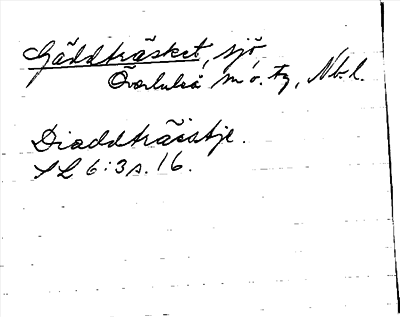 Gäddträsket, sjö,
Överluleå m o. tg, Nb. l.
Diaddträsstje.
SL 6:3 s. 16.